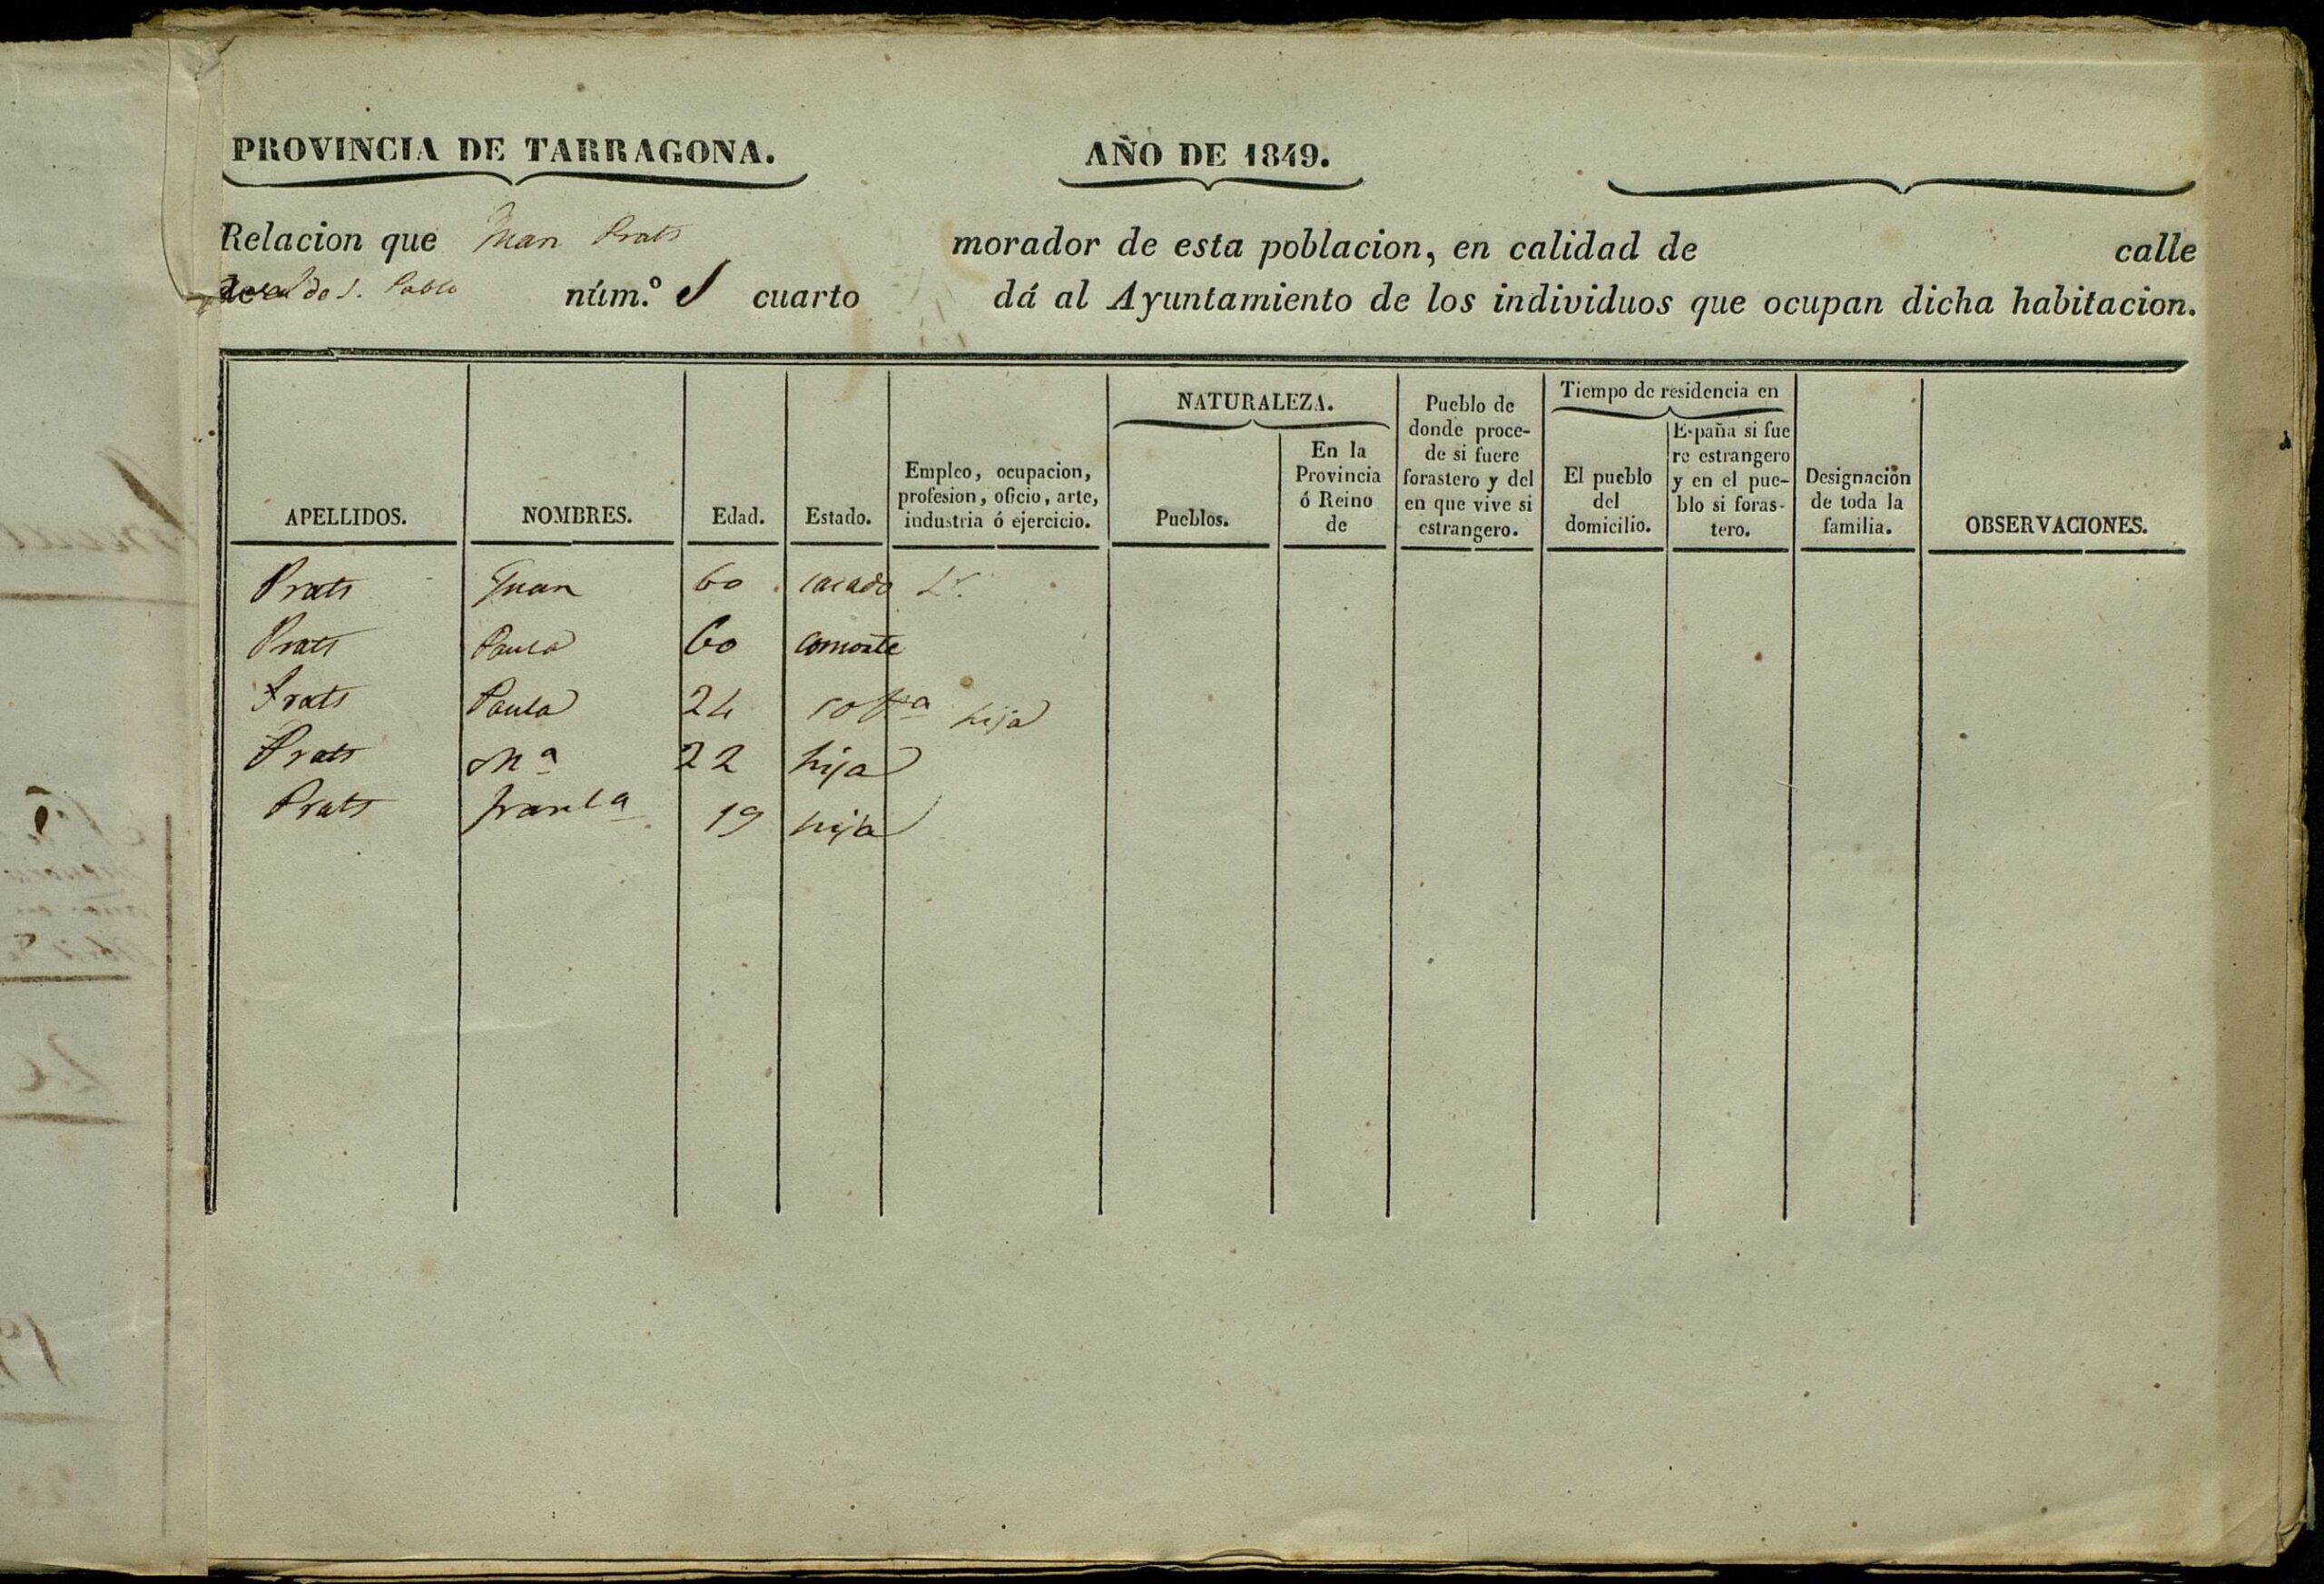 PROVINCIA DE TARRAGONA. AÑO DE 1849.
Relacion que Juan Prats morador de esta poblacion, en calidad de calle
de S. Pablo núm.º 1 cuarto dá al Ayuntamiento de los individuos que ocupan dicha habitacion.
APELLIDOS.
NOMBRES.
Edad.
Estado.
Empleo, ocupacion,
profesion, oficio, arte,
industria ó ejercicio.
NATURALEZA.
Pueblos.
En la
Provincia
ó Reino
de
Pueblo de
donde proce-
de si fuere
forastero y del
en que vive si
estrangero.
Tiempo de residencia en
El pueblo
del
domicilio.
España si fue
re estrangero
y en el pue-
blo si foras-
tero.
Designacion
de toda la
familia.
OBSERVACIONES.
Prats Juan 60 casado Lr.
Prats Paula 60 consorte
Prats Paula 24 soltra hija
Prats Mª 22 hija
Prats Franca 19 hija